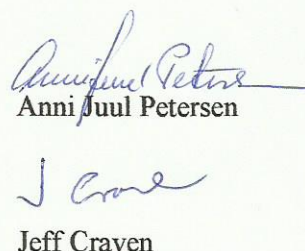 Anni Juul Petersen
Anni Juul Petersen
J Craven
Jeff Craven